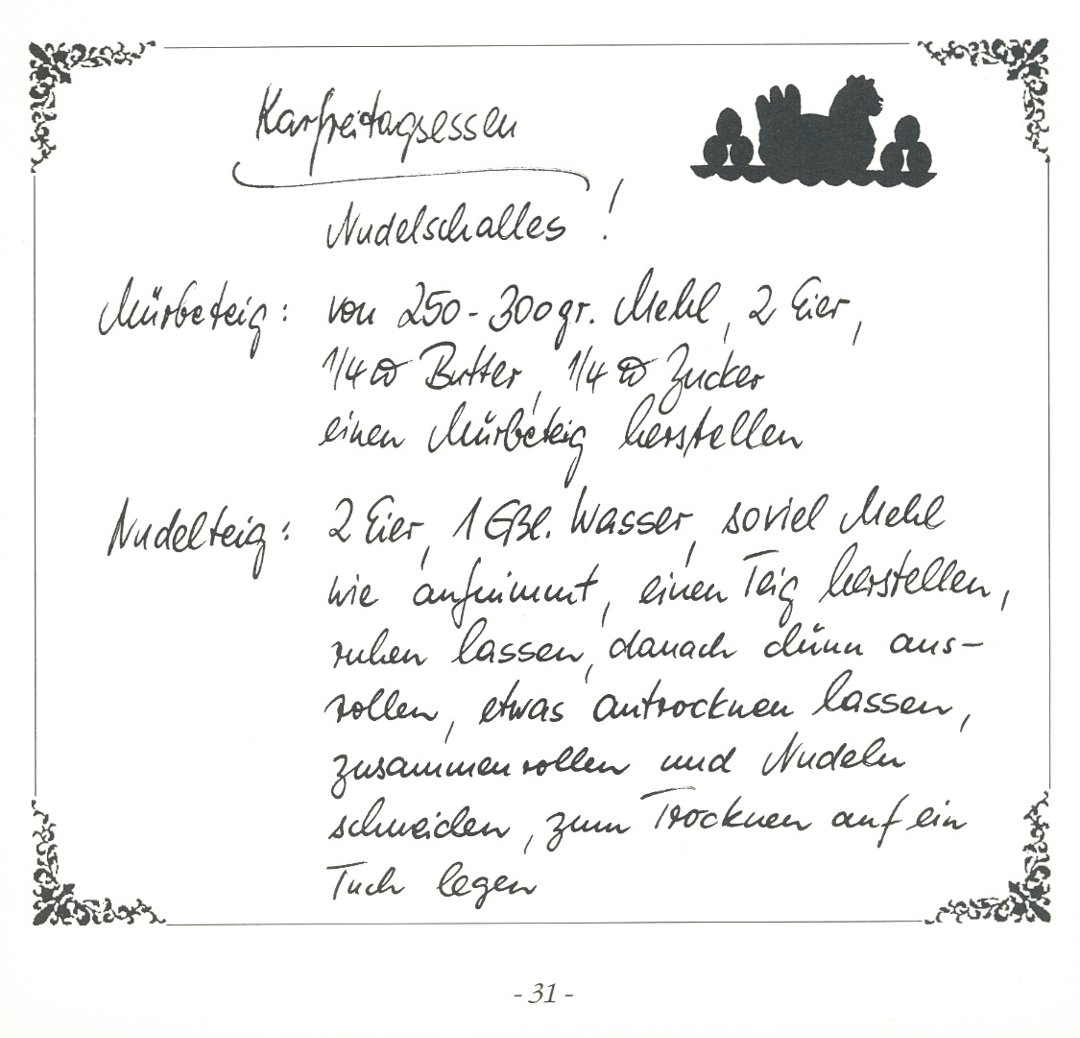 Karfreitagsessen
Nudelschalles!
Mürbeteig: von 250-300gr. Mehl, 2 Eier,
1/4 ℔ Butter, 1/4 ℔ Zucker
einen Mürbeteig herstellen
Nudelteig: 2 Eier, 1 Eßl. Wasser, soviel Mehl
wie aufnimmt, einen Teig herstellen,
ruhen lassen, danach dünn aus-
rollen, etwas antrocknen lassen,
zusammenrollen und Nudeln
schneiden, zum Trocknen auf ein
Tuch legen
- 31 -